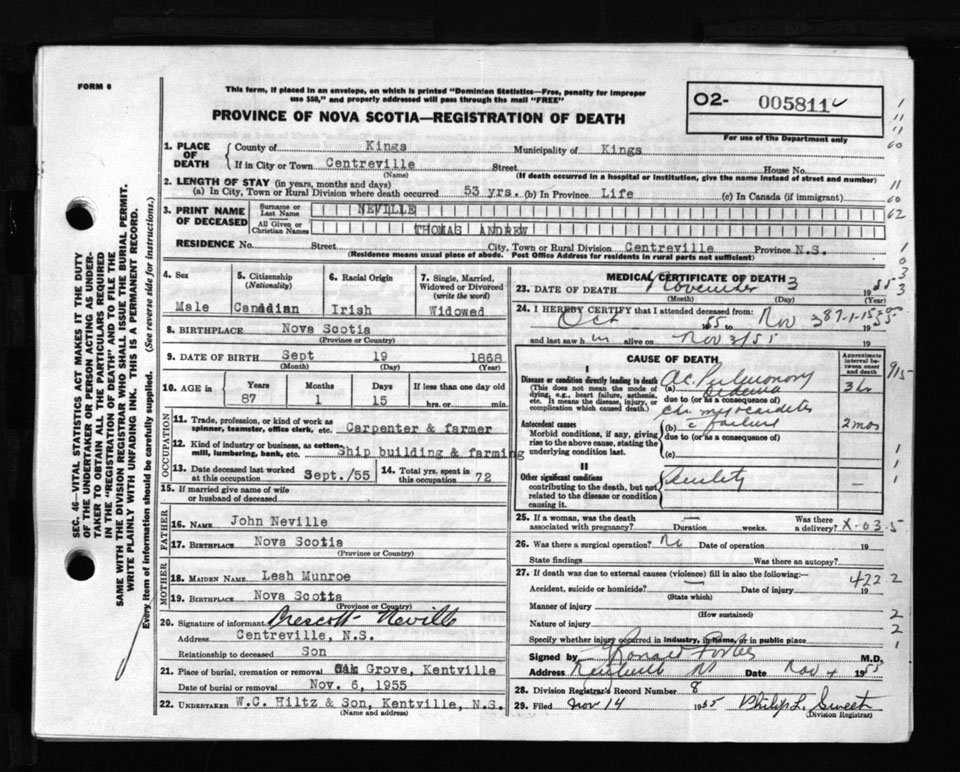 FORM 6
This form, if placed in an envelope, on which is printed "Dominion Statistics—Free, penalty for improper
use $50," and properly addressed will pass through the mail "FREE"
PROVINCE OF NOVA SCOTIA—REGISTRATION OF DEATH
02- 005811
For use of the Department only
1. PLACE OF DEATH
County of Kings Municipality of Kings
If in City or Town Centreville Street House No.
(Name) (If death occurred in a hospital or institution, give the name instead of street and number)
2. LENGTH OF STAY (in years, months and days)
(a) In City, Town or Rural Division where death occurred 53 yrs. (b) In Province Life (c) In Canada (if immigrant)
3. PRINT NAME OF DECEASED
Surname or Last Name NEVILLE
All Given or Christian Names THOMAS ANDREW
RESIDENCE No. Street City, Town or Rural Division Centreville Province N.S.
(Residence means usual place of abode. Post Office Address for residents in rural parts not sufficient)
4. Sex 5. Citizenship (Nationality) 6. Racial Origin 7. Single, Married, Widowed or Divorced (write the word)
Male Canadian Irish Widowed
8. BIRTHPLACE Nova Scotia
(Province or Country)
9. DATE OF BIRTH Sept 19 1868
(Month) (Day) (Year)
10. AGE in Years Months Days If less than one day old
87 1 15 hrs. or min.
OCCUPATION
11. Trade, profession, or kind of work as spinner, teamster, office clerk, etc. Carpenter & farmer
12. Kind of industry or business, as cotton-mill, lumbering, bank, etc. Ship building & farming
13. Date deceased last worked at this occupation Sept./55 14. Total yrs. spent in this occupation 72
15. If married give name of wife or husband of deceased
FATHER
16. NAME John Neville
17. BIRTHPLACE Nova Scotia
(Province or Country)
MOTHER
18. MAIDEN NAME Leah Munroe
19. BIRTHPLACE Nova Scotia
(Province or Country)
20. Signature of informant Prescott Neville
Address Centreville, N.S.
Relationship to deceased Son
21. Place of burial, cremation or removal Oak Grove, Kentville
Date of burial or removal Nov. 6, 1955
22. UNDERTAKER W.C. Hiltz & Son, Kentville, N.S.
(Name and address)
MEDICAL CERTIFICATE OF DEATH
23. DATE OF DEATH November 3 1955
(Month) (Day) (Year)
24. I HEREBY CERTIFY that I attended deceased from:
Oct 55 to Nov 3 1955
87-1-15
and last saw him alive on Nov 3/55 19
CAUSE OF DEATH
Approximate interval between onset and death
I
Disease or condition directly leading to death
(This does not mean the mode of dying, e.g., heart failure, asthenia, etc. It means the disease, injury, or complication which caused death.)
(a) Ac. Pulmonary Oedema 3 hr
due to (or as a consequence of)
Ch myocarditis
Antecedent causes
Morbid conditions, if any, giving rise to the above cause, stating the underlying condition last.
(b) c failure 2 mos
due to (or as a consequence of)
(c)
II
Other significant conditions
contributing to the death, but not related to the disease or condition causing it.
Senility —
25. If a woman, was the death associated with pregnancy? — Duration weeks. Was there a delivery? X-03-5
26. Was there a surgical operation? No Date of operation 19
State findings Was there an autopsy?
27. If death was due to external causes (violence) fill in also the following:—
422 2
Accident, suicide or homicide? Date of injury 19
(State which)
Manner of injury
(How sustained)
Nature of injury
Specify whether injury occurred in industry, in home, or in public place
Signed by Ronald Forbes M.D.
Address Kentville NS Nov 4 1955
28. Division Registrar's Record Number 8
29. Filed Nov 14 1955 Philip L. Sweet
(Division Registrar)
SEC. 46—VITAL STATISTICS ACT MAKES IT THE DUTY
OF THE UNDERTAKER OR PERSON ACTING AS UNDER-
TAKER TO OBTAIN ALL THE PARTICULARS REQUIRED
IN THE "REGISTRATION OF DEATH" AND TO FILE THE
SAME WITH THE DIVISION REGISTRAR WHO SHALL ISSUE THE BURIAL PERMIT.
WRITE PLAINLY WITH UNFADING INK. THIS IS A PERMANENT RECORD.
Every item of information should be carefully supplied. (See reverse side for instructions.)
60
11
60
62
1
0
3
3
915
1
1
1
2
2
1